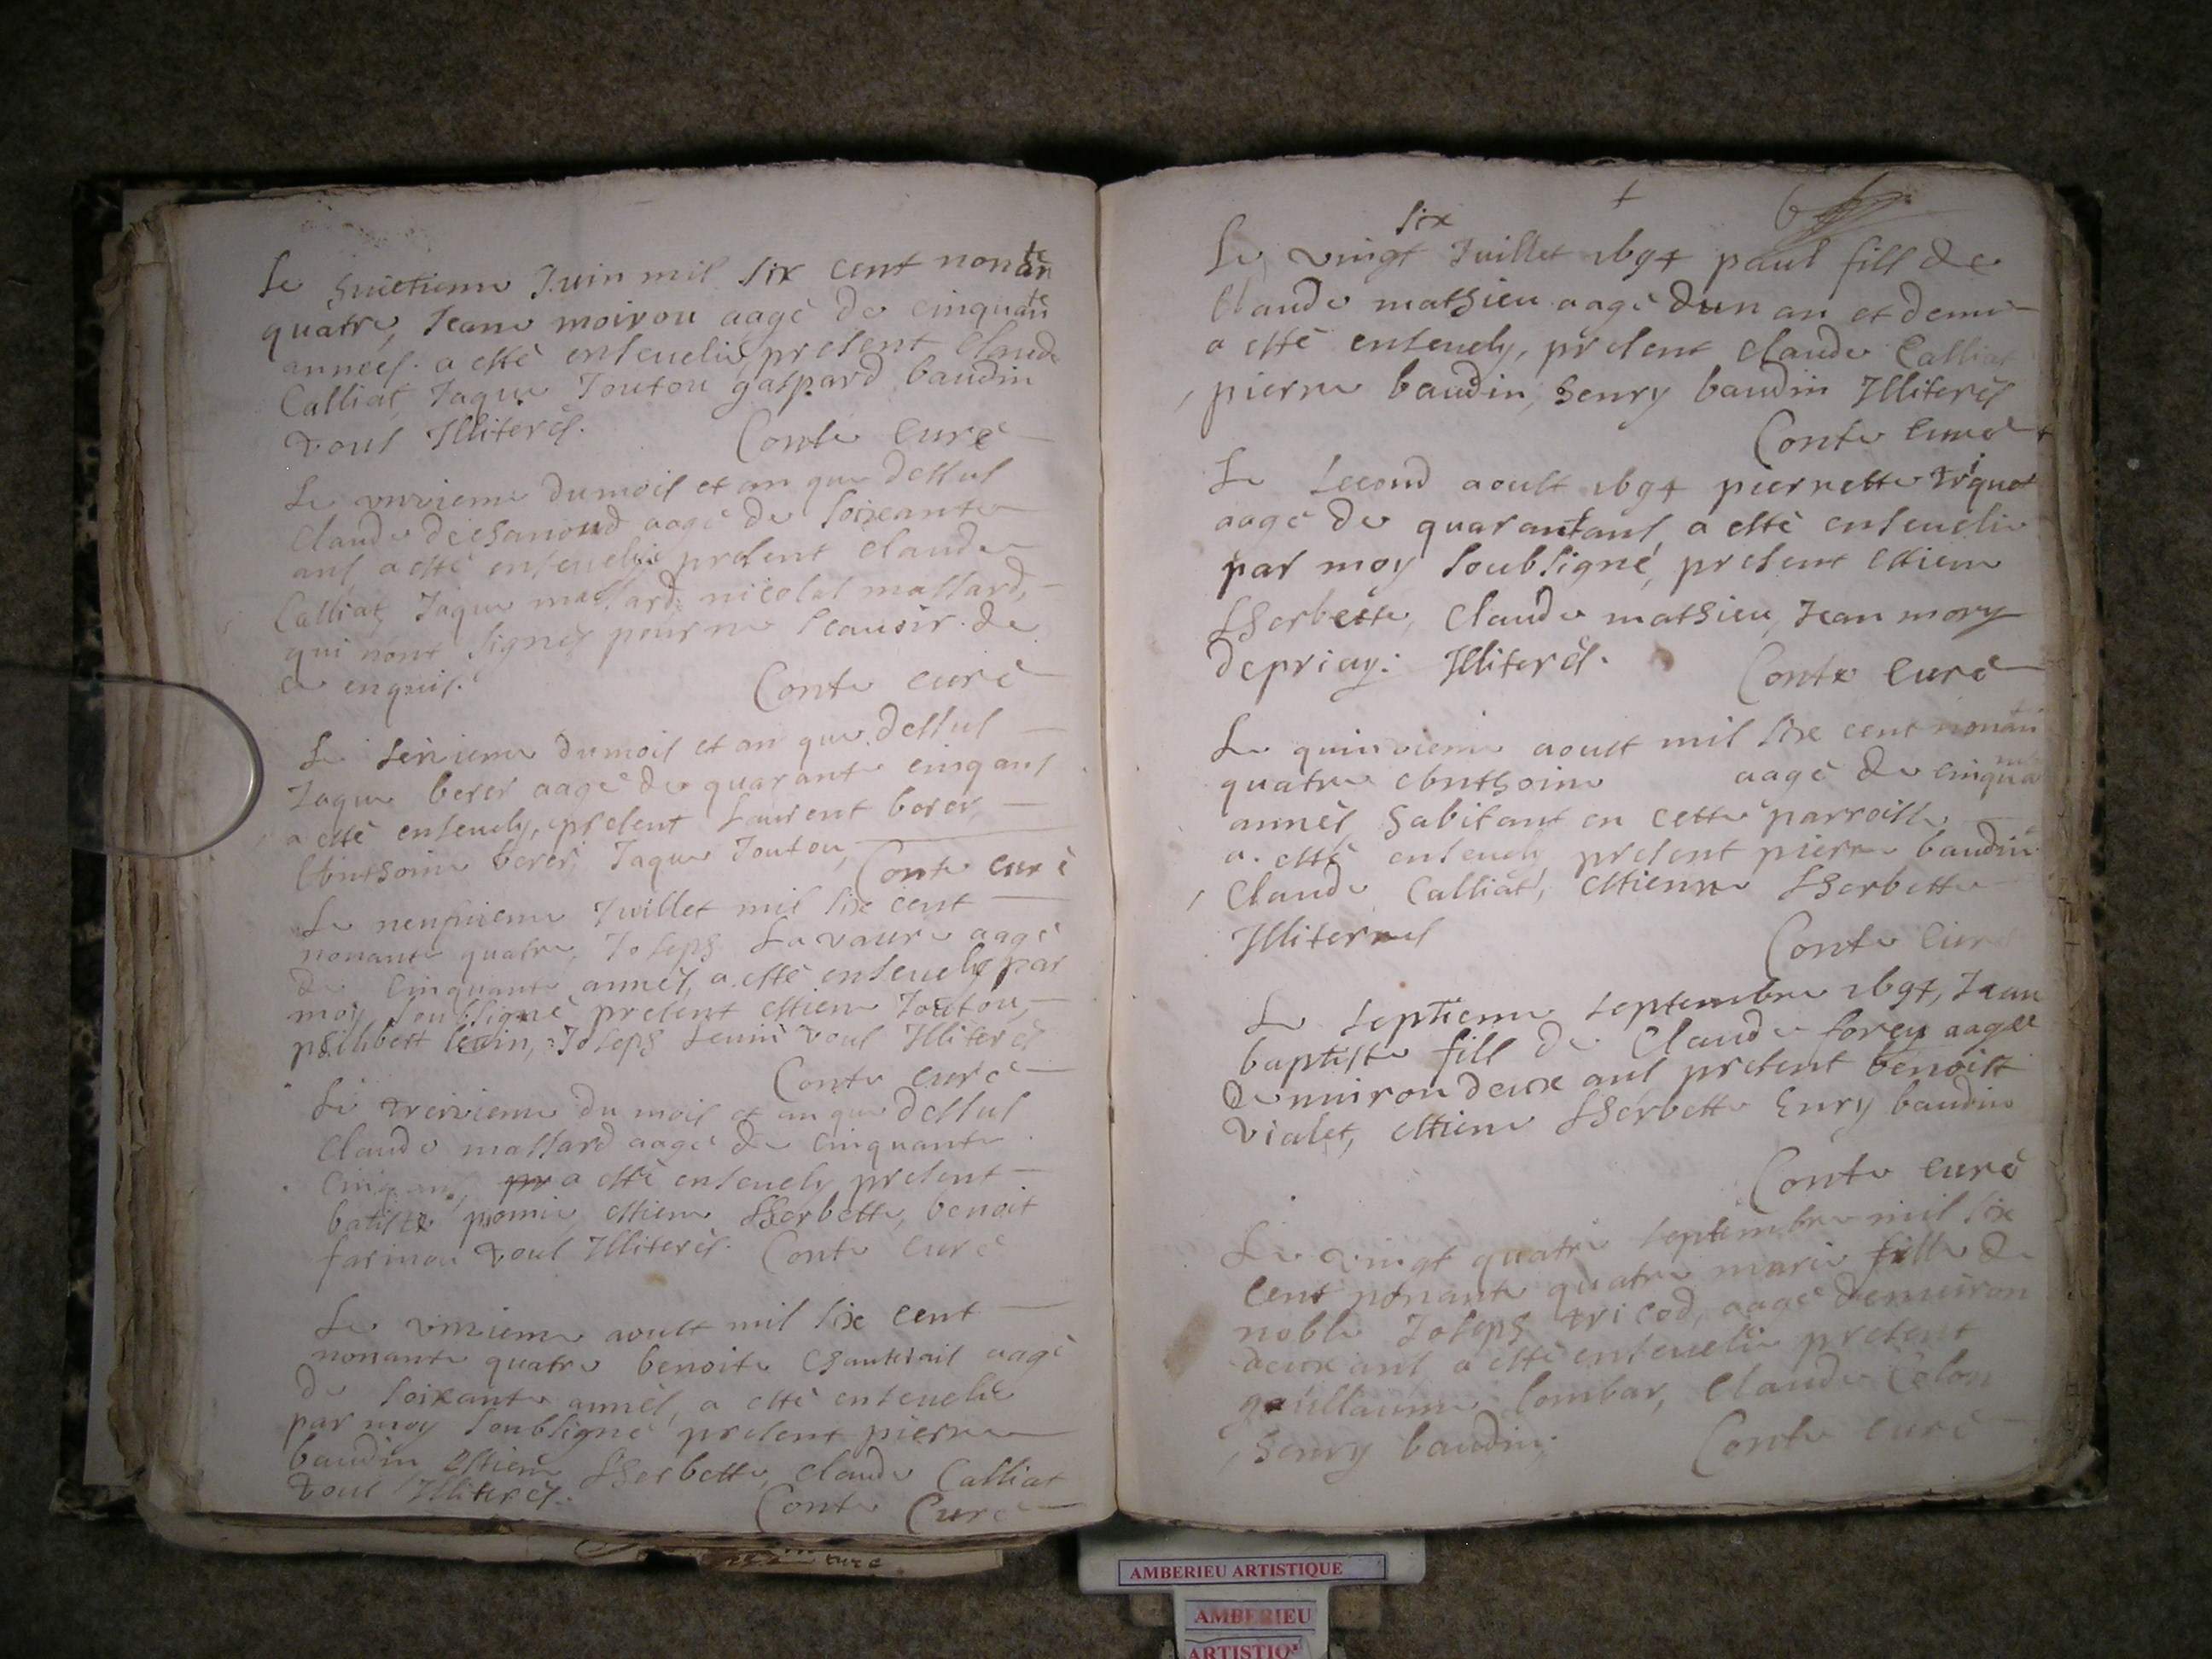 Le huictieme Juin mil six cent nonante
quatre, Jeane moirou aagé de cinquante
annees. a esté ensevelie, present Claude
Calliat, Jaque Joutou gaspard baudin
tous Illiterés. Conte curé
Le unzieme du mois et an que dessus
Claude dechanoud aagé de soixante
ans, a esté ensevelie present Claude
Calliat, Jaque massard, nicolas massard,
qui nont signés pour ne scavoir. de
ce enquis. Conte curé
Le sezieme du mois et an que dessus
Jaque berer aagé de quarante cinq ans
a esté ensevely, present Laurent berer,
Enthoine berer, Jaque Joutou, Conte curé
Le neufvieme Juillet mil six cent
nonante quatre, Joseph Lavaure aagé
de cinquante annés, a esté ensevely par
moy soubsigné present estiene Joutou,
philibert , Joseph tous Illiterés
Conte curé
Le treizieme du mois et an que dessus
Claude massard aagé de cinquante
cinq ans, a esté ensevely present
batiste estiene Lherbette, benoit
farmou tous Illiterés. Conte curé
Le unzieme aoust mil six cent
nonante quatre benoite aagé
de soixante annés, a esté ensevelie
par moy soubsigné present pierre
baudin Estiene Lherbette, Claude Calliat
tous Illiterés. Conte Curé
Le vingt six Juillet 1694 paul fils de
Claude mathieu aagé dun an et demi
a esté ensevely, present Claude Calliat
pierre baudin, henry baudin Illiterés
Conte curé
Le second aoust 1694 pierrette
aagé de quarantans, a esté ensevelie
par moy soubsigné, present estiene
Lherbette, Claude mathieu, Jean mory
depriay: Illiterés. Conte Curé
Le quinzieme aoust mil six cent nonan
quatre Enthoine aagé de cinqua
annés, habitant en cette parroisse
a. esté ensevely present pierre baudin
Claude Calliat, estienne Lherbette
Illiterres Conte Curé
Le septieme septembre 1694, Jean
baptiste fils de Claude forey aagee
denviron deux ans present benoist
vialet, estiene Lherbette Enry baudin
Conte curé
Le vingt quatre septembre mil six
cent nonante quatre marie fille de
noble Joseph tricod, aagé denviron
deux ans a esté ensevelie present
guillaume lombar, Claude Colon
henry baudin, Conte curé
AMBERIEU ARTISTIQUE
AMBERIEU
ARTISTIQ